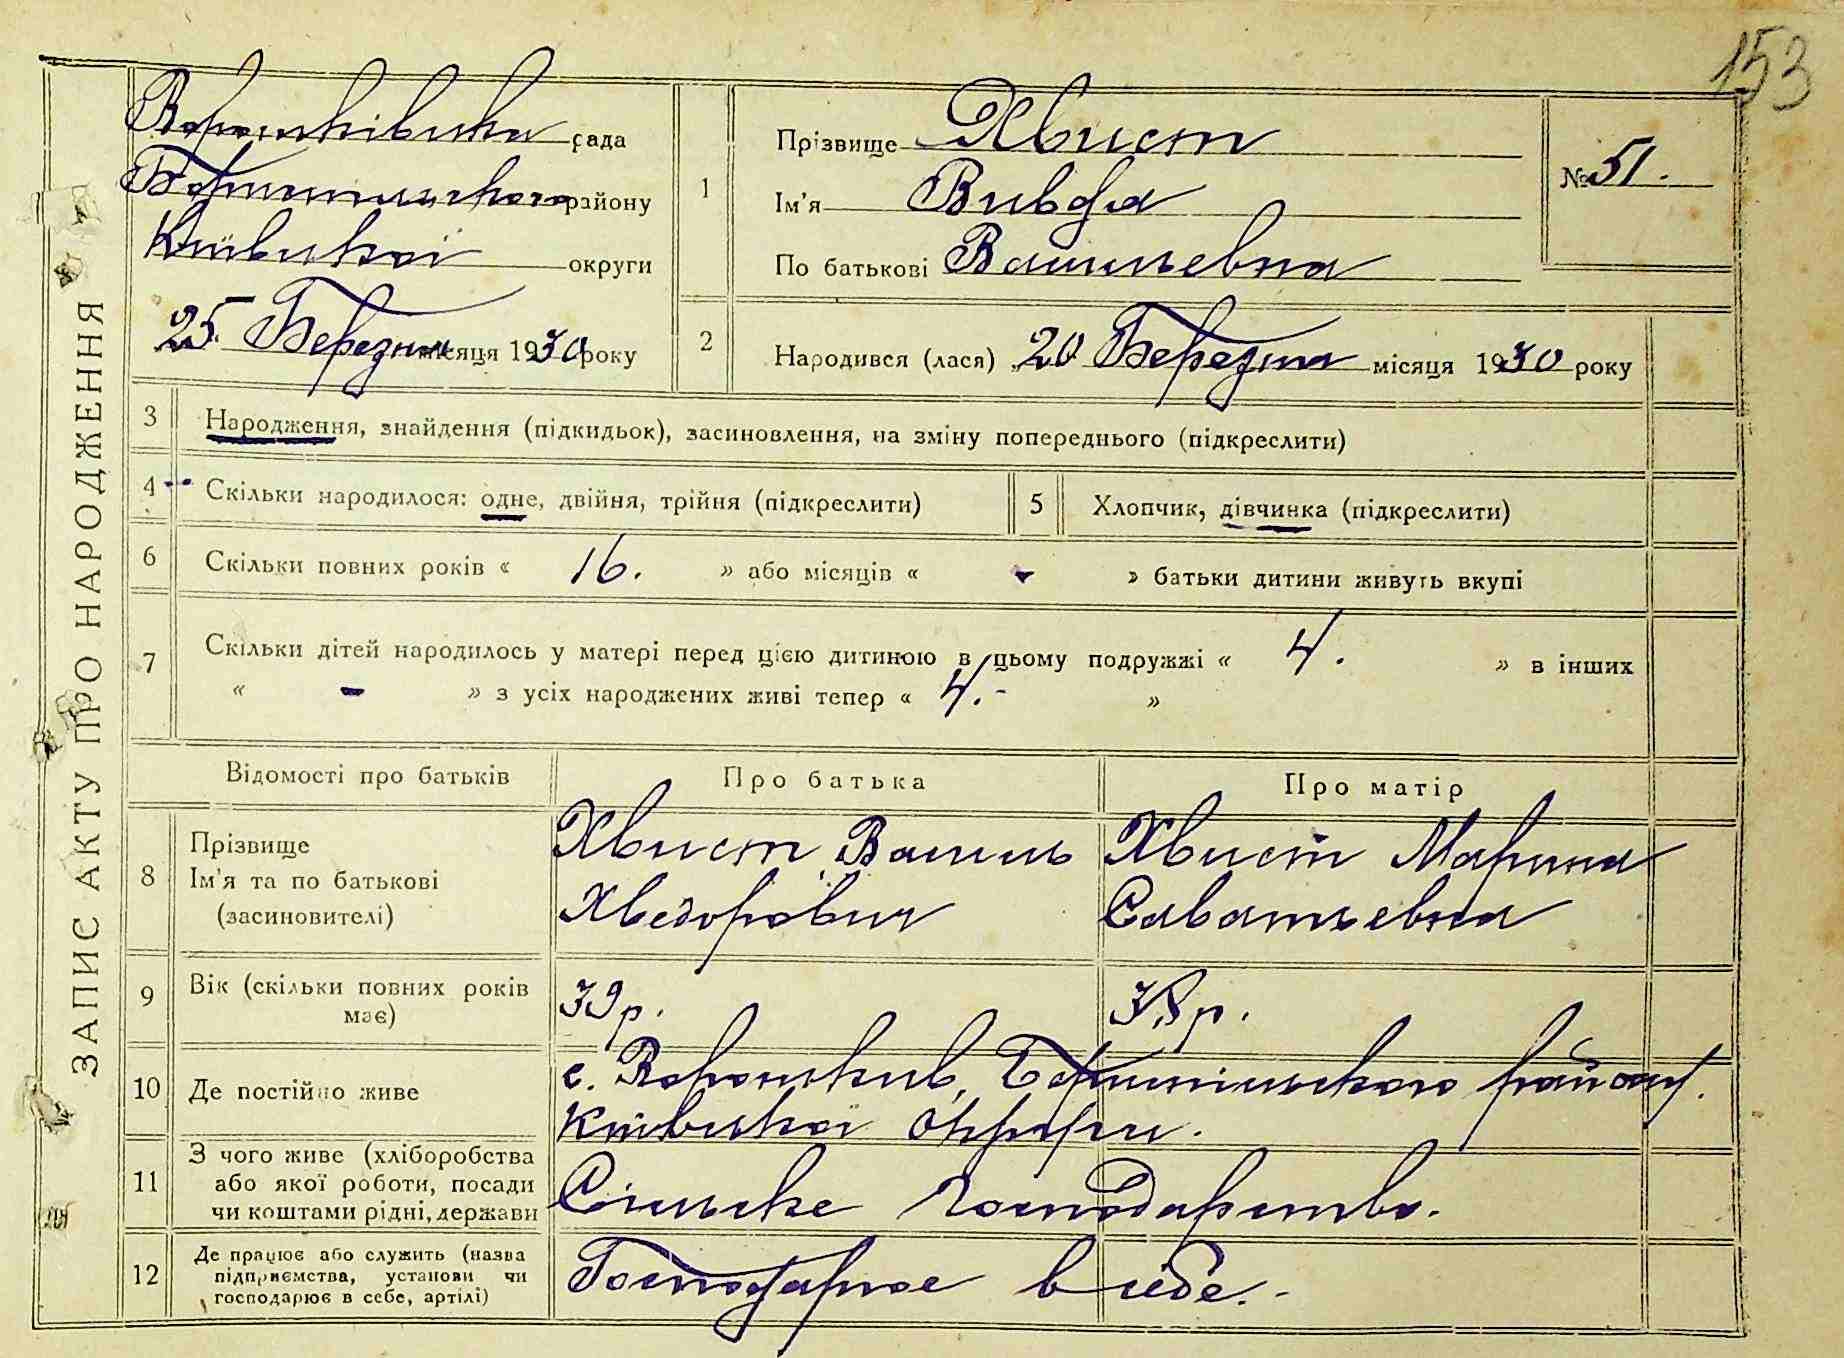 153
ЗАПИС АКТУ ПРО НАРОДЖЕННЯ
Вороньківська рада
Бориспільського району
Київської округи
25 Березня місяця 1930 року
1
Прізвище Хвист
Ім'я Вивдя
По батькові Васильевна
№ 51.
2
Народився (лася) 20 Березня місяця 1930 року
3 Народження, знайдення (підкидьок), засиновлення, на зміну попереднього (підкреслити)
4 Скільки народилося: одне, двійня, трійня (підкреслити) 5 Хлопчик, дівчинка (підкреслити)
6 Скільки повних років « 16. » або місяців « - » батьки дитини живуть вкупі
7 Скільки дітей народилось у матері перед цією дитиною в цьому подружжі « 4. » в інших
« - » з усіх народжених живі тепер « 4.- »
Відомості про батьків Про батька Про матір
8 Прізвище
Ім'я та по батькові
(засиновителі)
Хвист Василь
Хведорович
Хвист Марина
Саватьевна
9 Вік (скільки повних років
має)
39 р.
38 р.
10 Де постійно живе
с. Вороньків, Бориспільского району.
Київської Округи.
11 З чого живе (хліборобства
або якої роботи, посади
чи коштами рідні, держави
Сільске Господарство.
12 Де працює або служить (назва
підприємства, установи чи
господарює в себе, артілі)
Господарює в себе.-